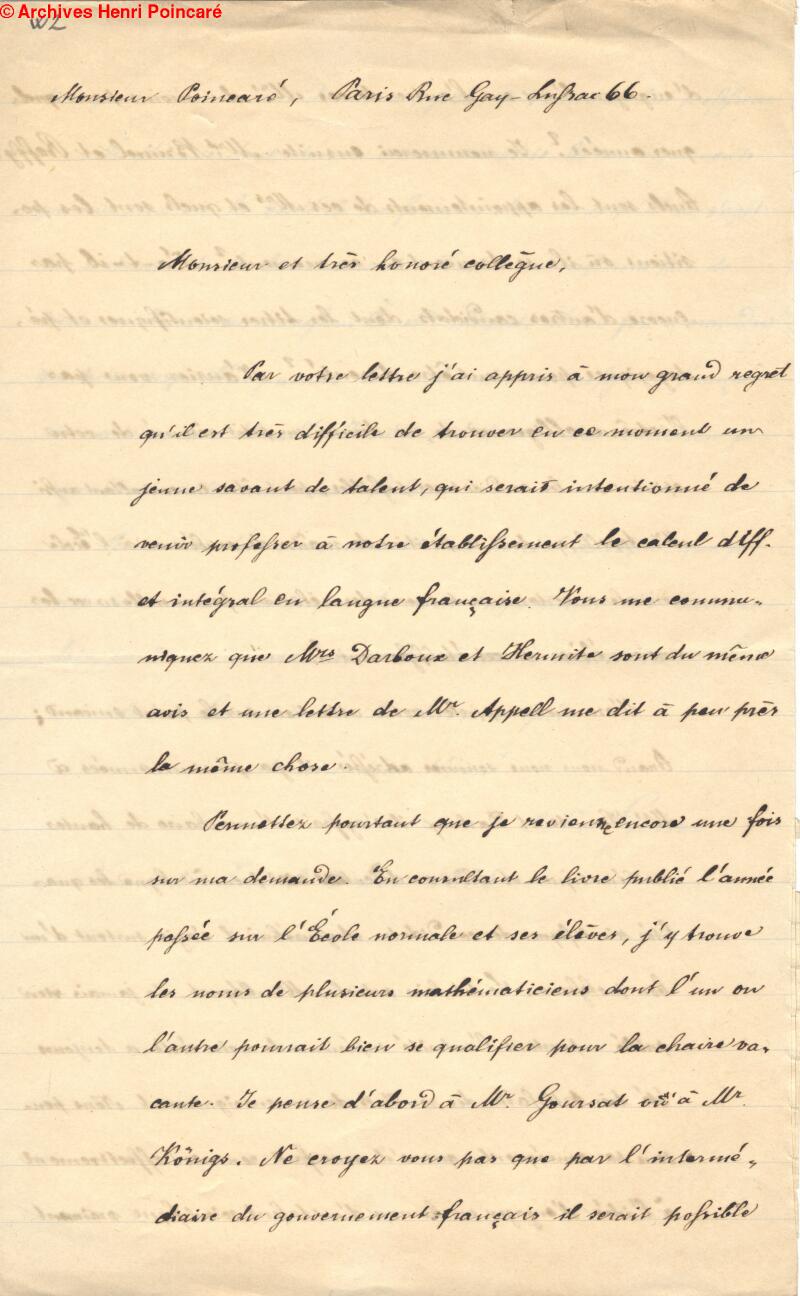 © Archives Henri Poincaré
Monsieur Poincaré, Paris Rue Gay-Lussac 66.
Monsieur et très honoré collègue,
Par votre lettre j'ai appris à mon grand regret
qu'il est très difficile de trouver en ce moment un
jeune savant de talent, qui serait intentionné de
venir professer à notre établissement le calcul diff.
et intégral en langue française. Vous me commu-
niquez que Mrs Darboux et Hermite sont du même
avis et une lettre de Mr. Appell me dit à peu près
la même chose.
Permettez pourtant que je revienne encore une fois
sur ma demande. En consultant le livre publié l'année
passée sur l'École normale et ses élèves, j'y trouve
les noms de plusieurs mathématiciens dont l'un ou
l'autre pourrait bien se qualifier pour la chaire va-
cante. Je pense d'abord à Mr. Goursat ou à Mr.
Königs. Ne croyez vous pas que par l'intermé-
diaire du gouvernement français il serait possible